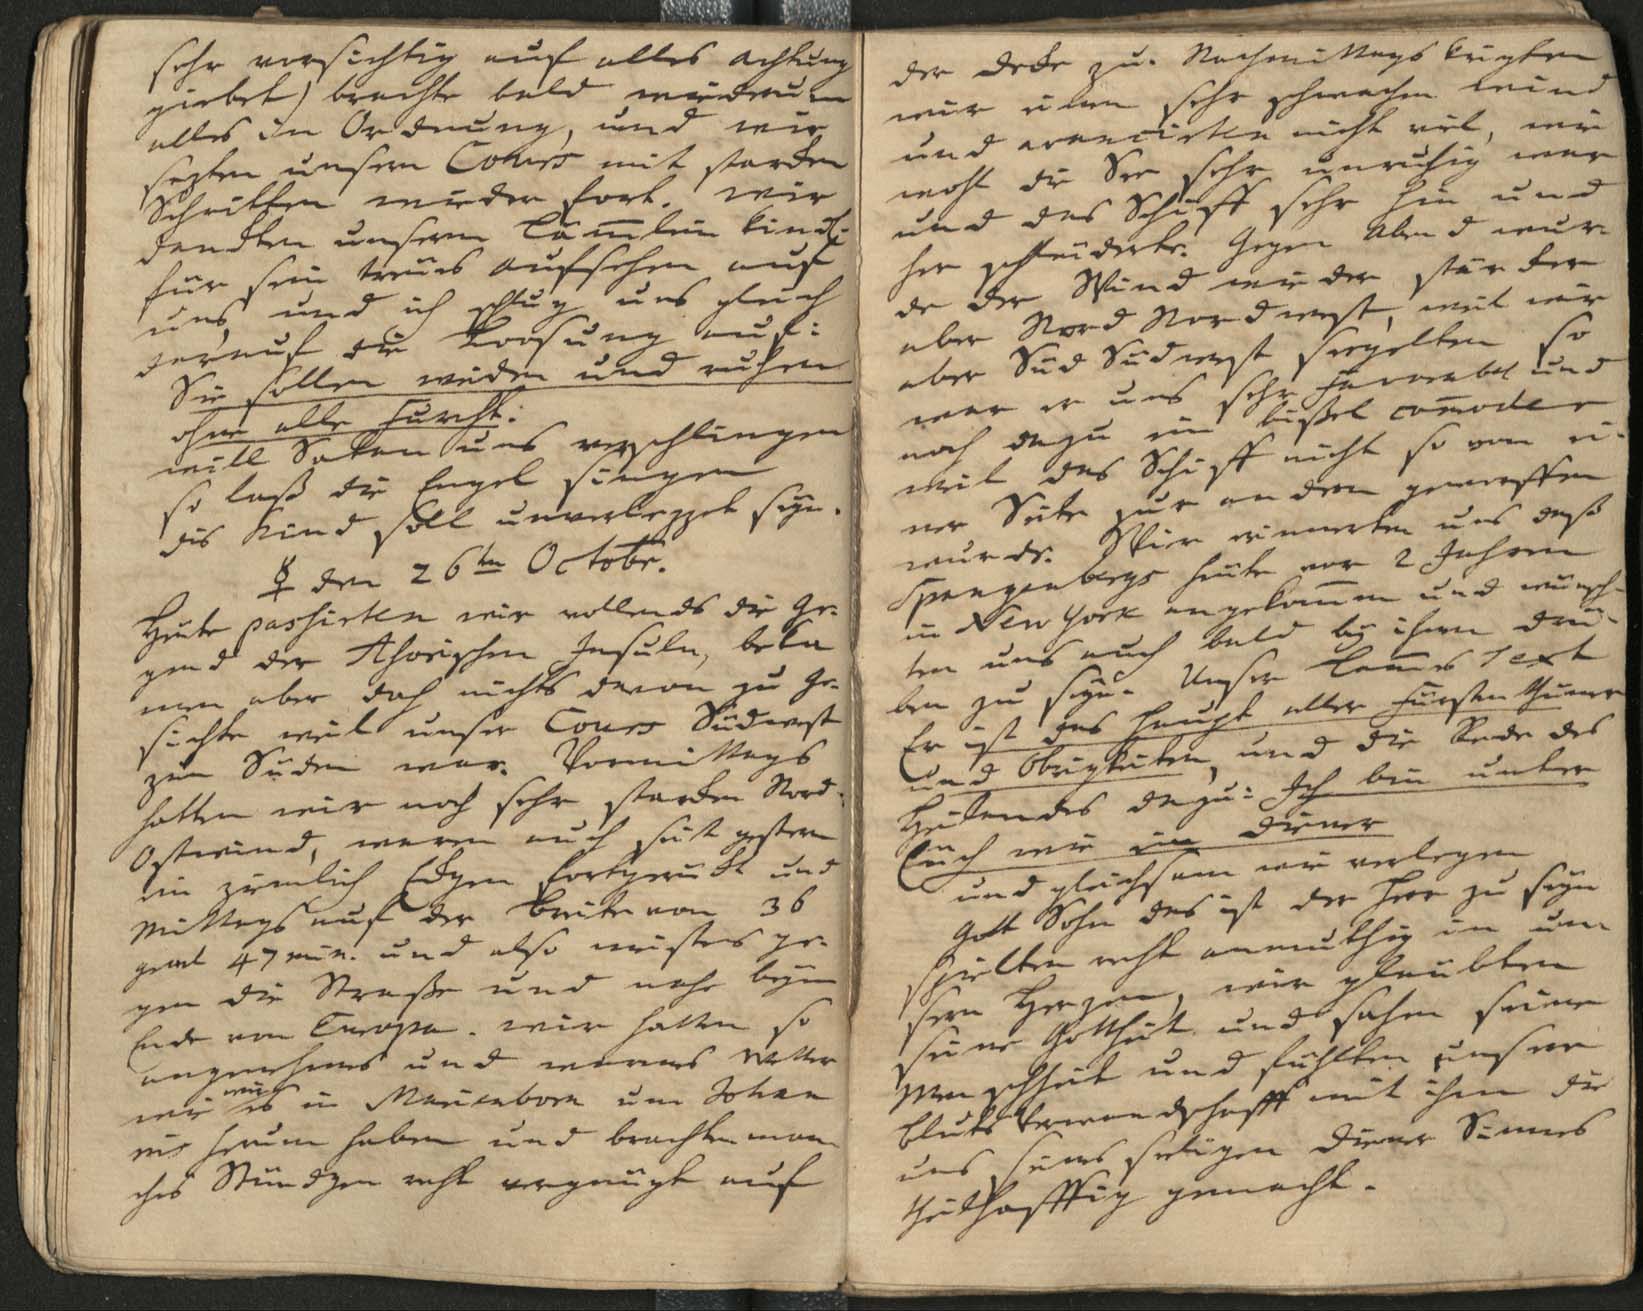 sehr vorsichtig auf alles achtung
giebet) brachte bald wiederum
alles in Ordnung, und wir
sezten unsern Cours mit starcken
Schritten wieder fort. wir
danckten unserm Lam̄lein kindl:
für sein treües aufsehen auf
uns, und ich schlug uns gleich
darauf die Loosung auf:
Sie sollen weiden und ruhen
ohne alle Furcht.
will Satan uns verschlingen
so laß die Engel singen
dis Kind soll unverlezzet seyn.
☿ den 26ten Octobr.
Heute passirten wir vollends die Ge-
gend der Azorischen Insuln, beka
men aber doch nichts davon zu Ge-
sichte weil unser Cours Südwest
zum Süden war. Vormittags
hatten wir noch sehr starcken Nord-
Ostwind, waren auch seit gestern
ein ziemlich Eckgen fortgerückt und
Mittags auf der Breite von 36
grad 47 min. und also meistens ge-
gen die Straße und nahe beym
Ende von Europa. wir hatten so
angenehmes und warmes Wetter
wie wirs in Marienborn um Johan
nis herum haben und brachten man
ches Stündgen recht vergnügt auf
der Decke zu. Nachmittags kriegten
wir einen sehr schwachen wind
und avancirten nicht viel, wie
wohl die See sehr unruhig war
und das Schiff sehr hin und
her schleuderte. Gegen Abend wur-
de der Wind wieder stärcker
aber Nord Nordwest, weil wir
aber Süd Südwest seegelten so
war er uns sehr favorabel und
noch dazu ein bißel com̄oder
weil das Schiff nicht so von ei-
ner Seite zur andern geworffen
wurde. Wir erinnerten uns daß
Spangenbergs heute vor 2 Jahren
in New York angekom̄en und wünsch-
ten uns auch bald bey ihnen drü-
ben zu seyn. Unser Lamms Text
Er ist das Haupt aller Fürstenthümer
und Obrigkeiten, und die Rede des
Heilandes dazu: Ich bin unter
Euch wie ein Diener
und gleichsam wie verlegen
Gott Sohn das ist der Herr zu seyn
spielten recht anmuthig in un-
sern Herzen, wir glaubten
seine Gottheit und sahen seine
Menschheit und fühlten unsere
Bluts Verwandschafft mit ihm die
uns seines seeligen Diener Sinnes
theilhafftig gemacht.